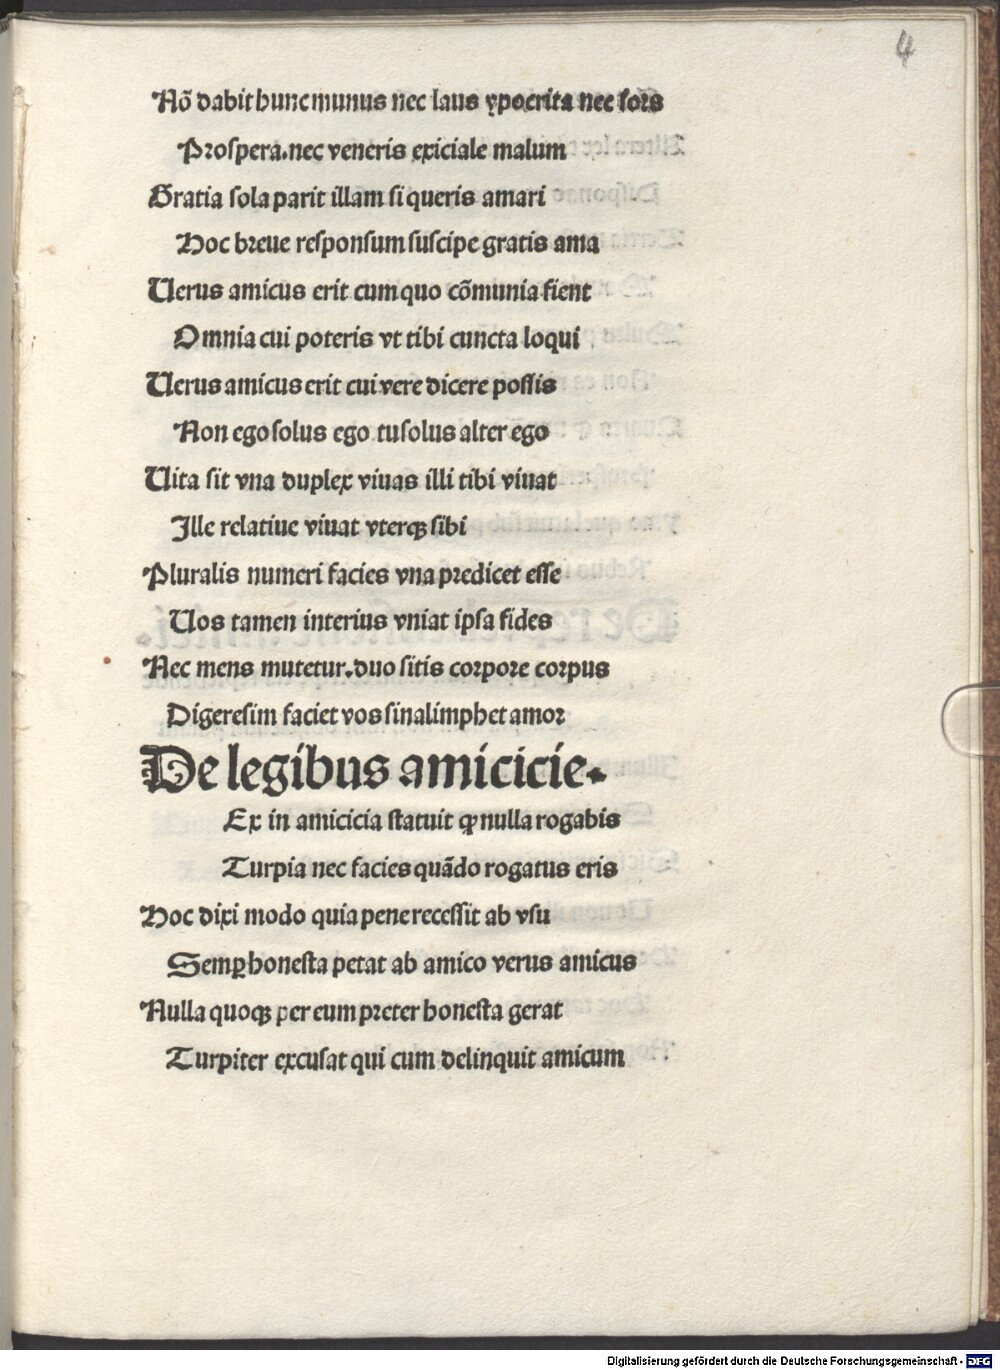 4
Nõ dabit hunc munus nec laus ypocrita nec sors
Prospera.nec veneris exiciale malum
Gratia sola parit illam si queris amari
Hoc breue responsum suscipe gratis ama
Uerus amicus erit cum quo cõmunia fient
Omnia cui poteris vt tibi cuncta loqui
Uerus amicus erit cui vere dicere possis
Non ego solus ego tu solus alter ego
Uita sit vna duplex viuas illi tibi viuat
Ille relatiue viuat vterqꝫ sibi
Pluralis numeri facies vna predicet esse
Uos tamen interius vniat ipsa fides
Nec mens mutetur.duo sitis corpore corpus
Digeresim faciet vos sinalimphet amor
De legibus amicicie.
Ex in amicicia statuit ꝙ nulla rogabis
Turpia nec facies quãdo rogatus eris
Hoc dixi modo quia pene recessit ab vsu
Semꝑ honesta petat ab amico verus amicus
Nulla quoqꝫ per eum preter honesta gerat
Turpiter excusat qui cum delinquit amicum
Digitalisierung gefördert durch die Deutsche Forschungsgemeinschaft - DFG